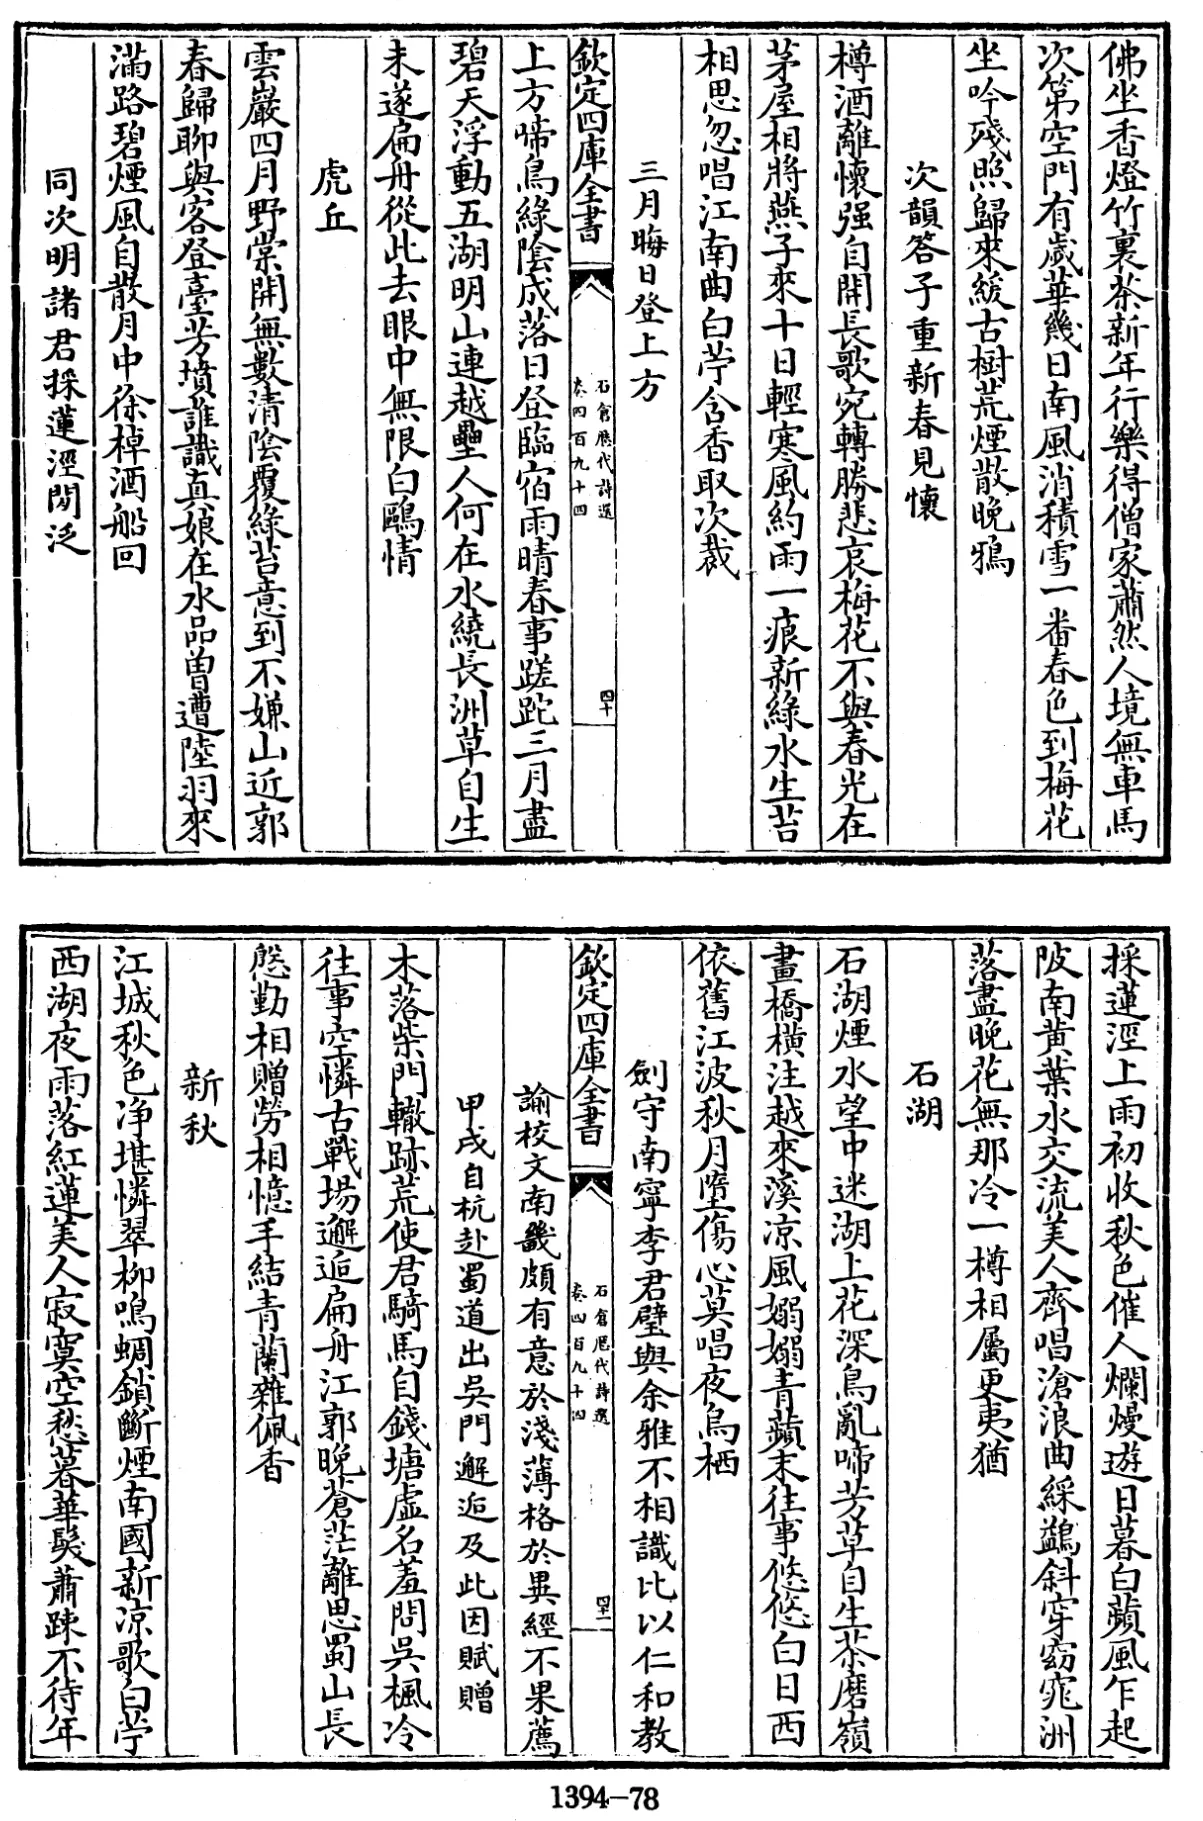 佛坐香燈竹裏茶新年行樂得僧家蕭然人境無車馬
次第空門有歲華幾日南風消積雪一番春色到梅花
坐吟殘照歸來緩古樹荒煙散晚鴉
次韻答子重新春見懷
樽酒離懷强自開長歌宛轉勝悲哀梅花不與春光在
茅屋相將燕子來十日輕寒風約雨一痕新綠水生苔
相思忽唱江南曲白苧含香取次裁
三月晦日登上方
欽定四庫全書
石倉歷代詩選
卷四百九十四
四十
上方啼鳥綠陰成落日登臨宿雨晴春事蹉跎三月盡
碧天浮動五湖明山連越壘人何在水繞長洲草自生
未遂扁舟從此去眼中無限白鷗情
虎丘
雲巖四月野棠開無數清陰覆綠苔意到不嫌山近郭
春歸聊與客登臺芳墳誰識真娘在水品曽遭陸羽來
滿路碧煙風自散月中徐棹酒船回
同次明諸君採蓮涇閒泛
採蓮涇上雨初收秋色催人爛熳遊日暮白蘋風乍起
陂南黄葉水交流美人齊唱滄浪曲綵鷁斜穿窈窕洲
落盡晚花無那冷一樽相屬更夷猶
石湖
石湖煙水望中迷湖上花深鳥亂啼芳草自生茶磨嶺
畫橋橫注越來溪凉風嫋嫋青蘋末往事悠悠白日西
依舊江波秋月墮傷心莫唱夜烏栖
劍守南寧李君璧與余雅不相識比以仁和教
欽定四庫全書
石倉歷代詩選
卷四百九十四
四十一
諭校文南畿頗有意於淺薄格於異經不果薦
甲戌自杭赴蜀道出吳門邂逅及此因賦贈
木落柴門轍跡荒使君騎馬自錢塘虛名羞問吳楓冷
往事空憐古戰場邂逅扁舟江郭晚蒼茫離思蜀山長
慇勤相贈勞相憶手結青蘭雜佩香
新秋
江城秋色净堪憐翠柳鳴蜩鎖斷煙南國新凉歌白苧
西湖夜雨落紅蓮美人寂寞空愁暮華髮蕭踈不待年
1394—78